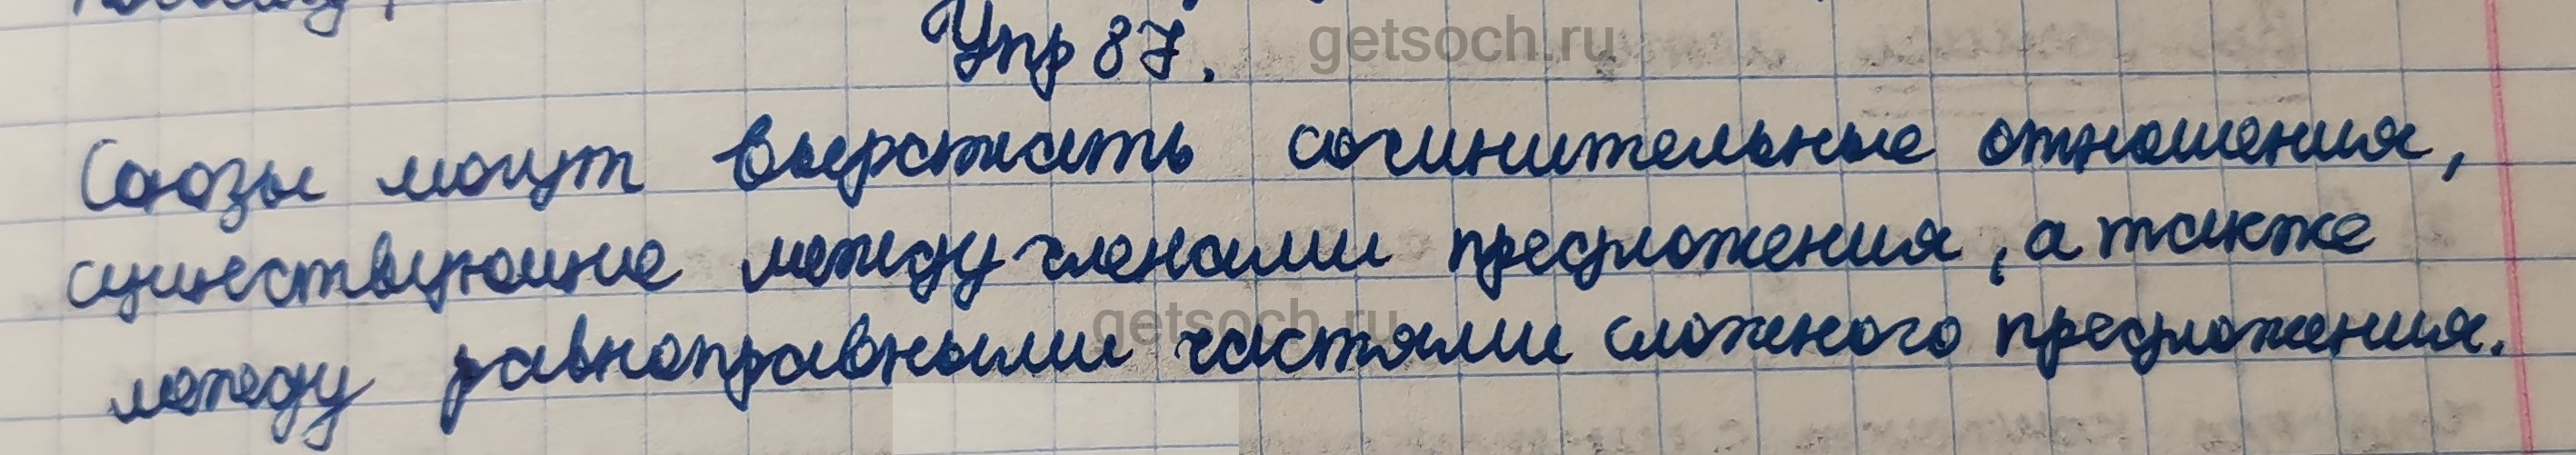 Упр 87.
getsoch.ru
Союзы могут выражать сочинительные отношения,
существующие между членами предложения, а также
getsoch.ru
между равноправными частями сложного предложения.